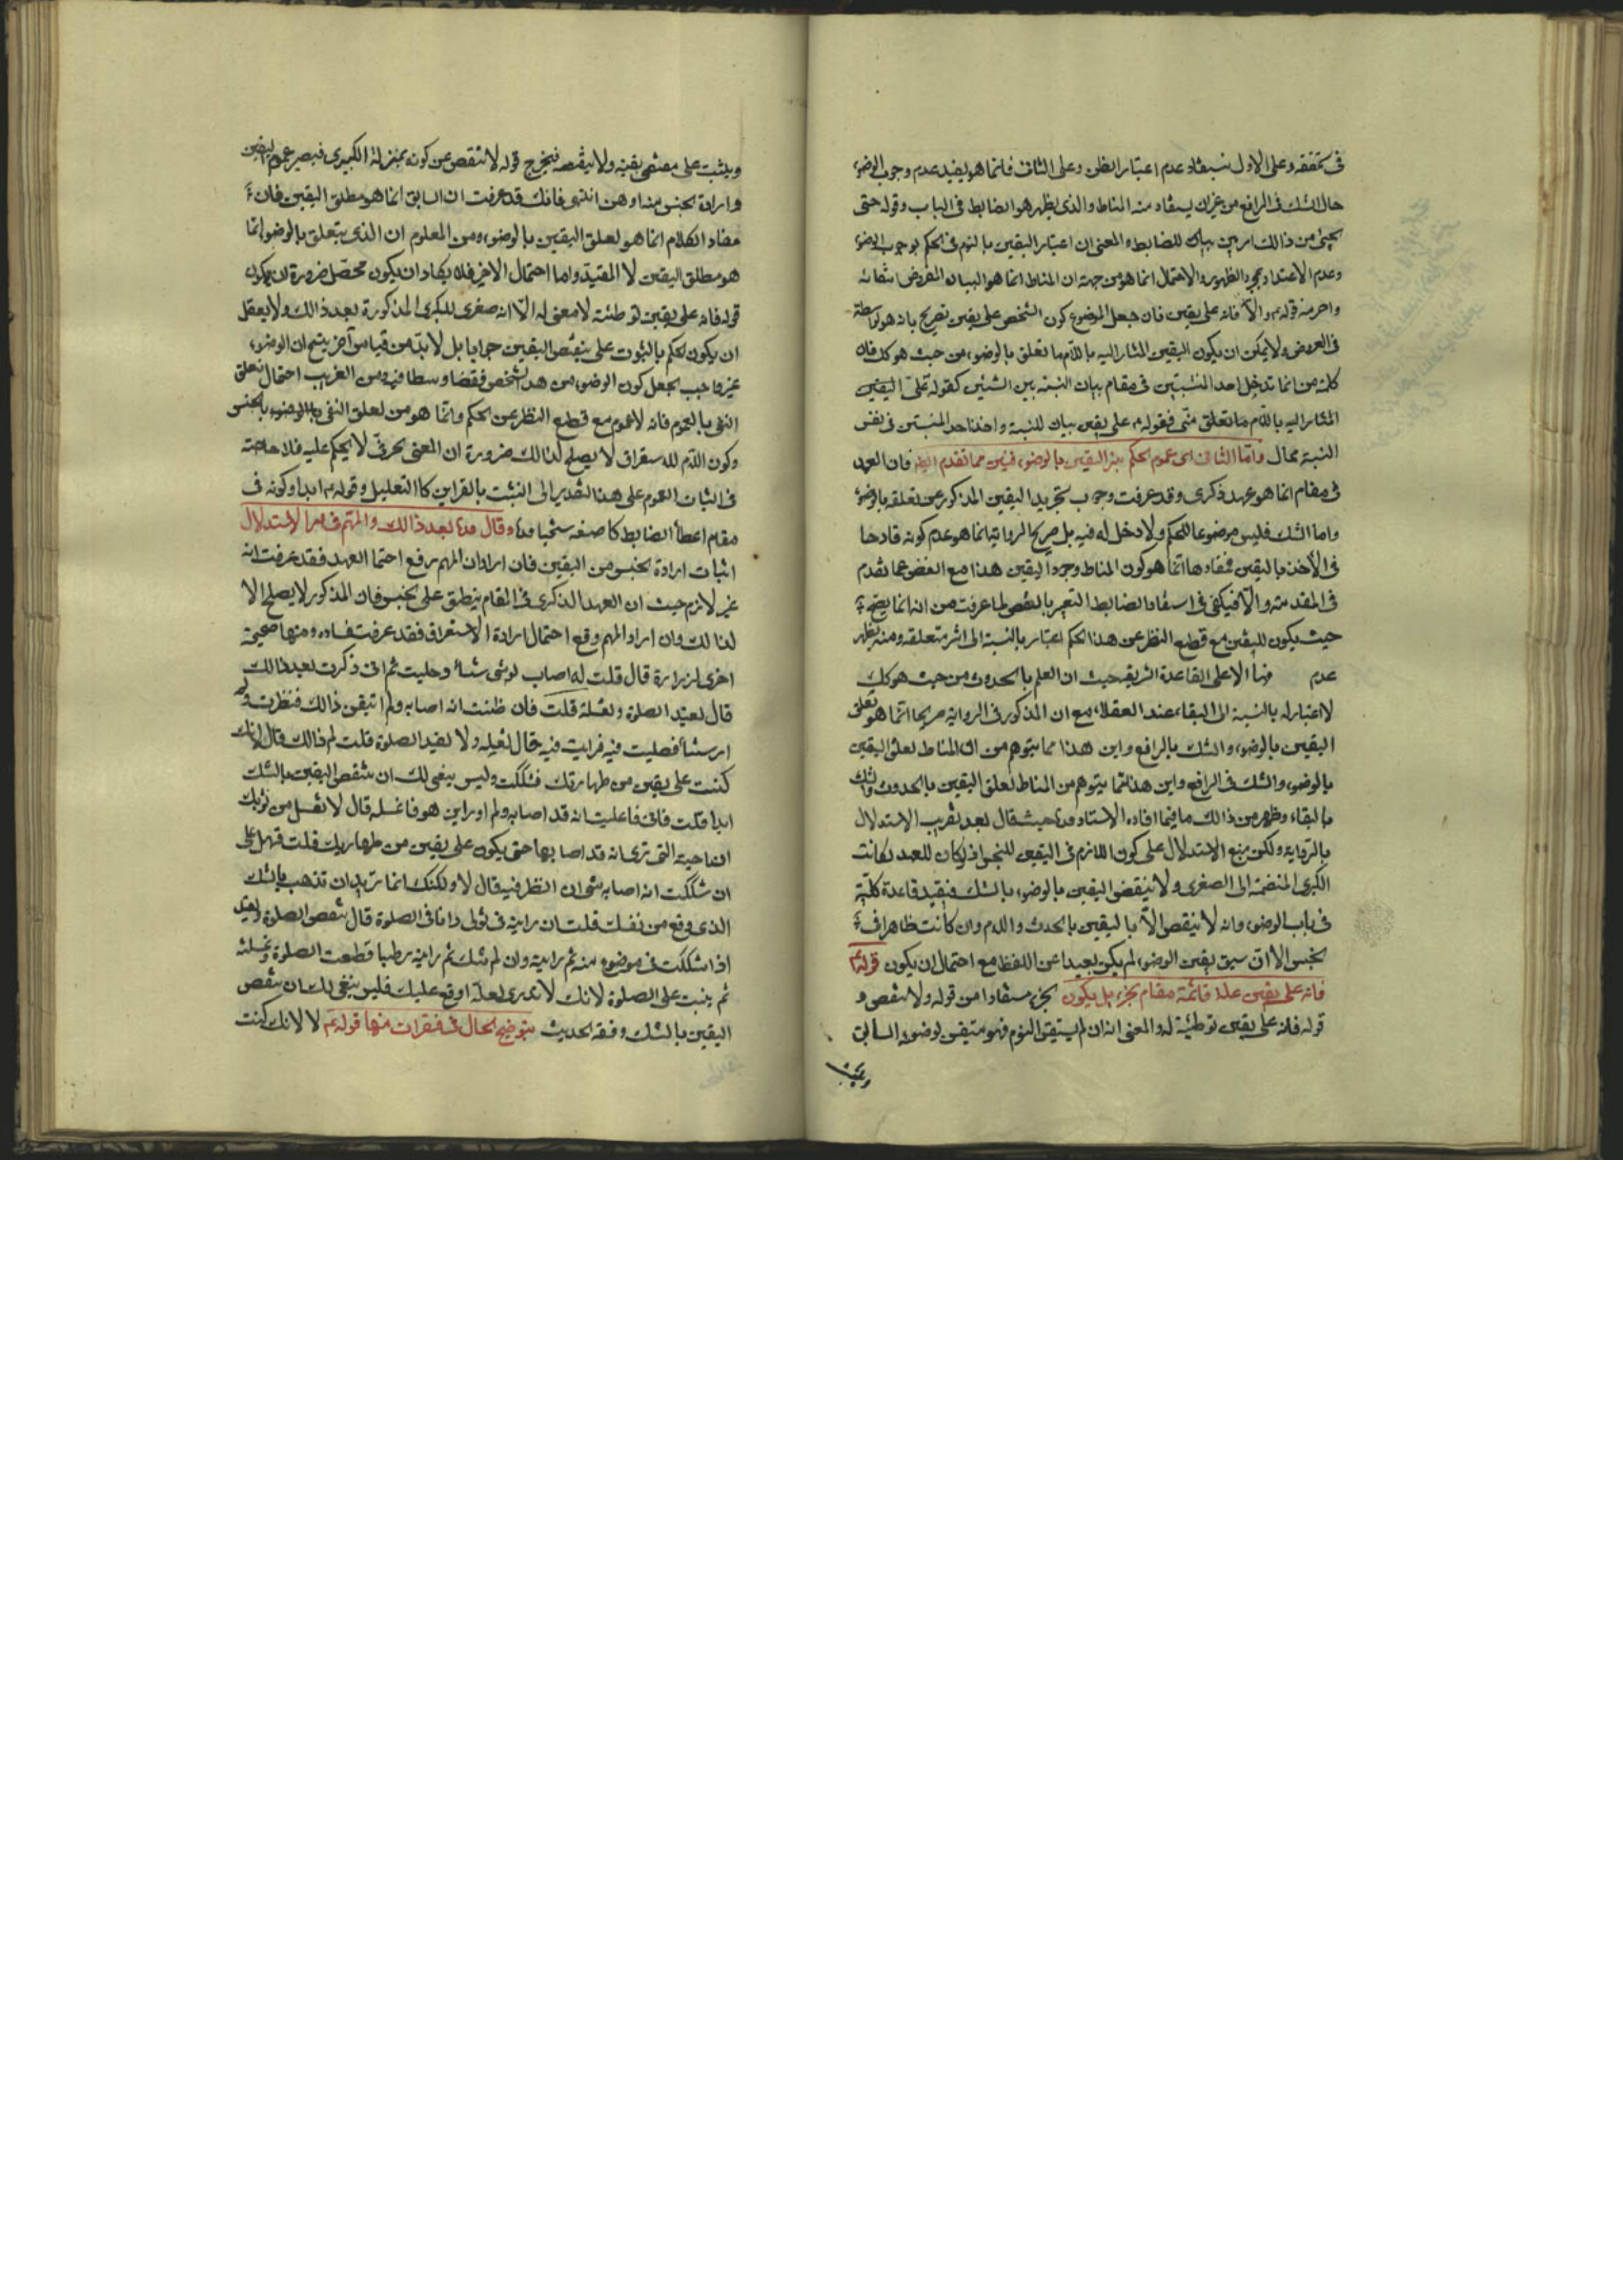 فى تحققه وعلى الاول نسبفاد عدم اعتبار الظن وعلى الثانى فانما هو يفيد عدم وجوب الوضوء
حال الشك فى الرافع من غير ان يستفاد منه المناط والذى يظهر هو الضابط فى الباب وقوله حتى
يجيئ من ذالك امر بين بيان للضابط والمعنى ان اعتبار اليقين بالنوم فى الحكم بوجوب الوضوء
وعدم الاعتداد بمجرد الظهور والاحتمال انما هو من جهة ان المناط انما هو البيان المفروض انتفائه
واحرمنه قوله والا فانه على يقين فان جعل الموضوع كون الشخص على يقين تصريح بانه هو الواسطة
فى العروض ولا يمكن ان يكون اليقين المشار اليه باللام ما تعلق بالوضوء من حيث هو كك فان
كلمة من انما تدخل احد المنتسبين فى مقام بيان النسبة بين الشيئين كقوله تعلق اليقين
المشار اليه باللام ما تعلق منّى فقوله على يقين بيان للنسبة واخذ احد المنتسبين فى نفس
النسبة محال واما الثانى اى عموم الحكم لغير اليقين بالوضوء فتبين مما تقدم ايضا فان العهد
فى مقام انما هو عهد ذكرى وقد عرفت وجوب تجريد اليقين المذكور عن تعلقه بالوضوء
واما الشك فليس موضوعا للحكم ولا دخل له فيه بل صريح الرواية انما هو عدم كونه قادحا
فى الأخذ باليقين فمفادها انما هو كون المناط وجود اليقين هذا مع الغض عما تقدم
فى المقدمة والا فيكفى فى استفاد الضابط التعبير بالنقض لما عرفت من انه انما يصح
حيث يكون لليقين مع قطع النظر عن هذا الحكم اعتبار بالنسبة الى اثر متعلقه ومنه يظهر
عدم منها الا على القاعدة الشريفة حيث ان العلم بالحدوث من حيث هو كك
لا اعتبار له بالنسبة الى البقاء عند العقلاء مع ان المذكور فى الرواية صريحا انما هو تعلق
اليقين بالوضوء والشك بالرافع واين هذا مما يتوهم من ان المناط تعلق اليقين
بالوضوء والشك فى الرافع واين هذا مما يتوهم من المناط تعلق اليقين بالحدوث والشك
بالبقاء وظهر من ذالك ما فيما افاده الاستاد قده حيث قال بعد تقريب الاستدلال
بالرواية ولكن مبنى الاستدلال على كون اللازم فى اليقين للجنس اذ لو كان للعهد لكانت
الكبرى المنضمة الى الصغرى ولا ينقض اليقين بالوضوء بالشك فيفيد قاعدة كلية
فى باب الوضوء وانه لا ينقض الا باليقين بالحدث واللام وان كانت ظاهرا فى
الجنس الا ان سبق يقين الوضوء لم يكن بعيدا عن اللفظ مع احتمال ان يكون قوله
فانه على يقين علة قائمة مقام الجزء بل يكون الجزء مستفادا من قوله ولا ينقض و
قوله فانه على يقين توطئة له والمعنى انه ان لم يستيقن النوم فهو متيقن لوضوئه السابق
ويثبت
ويثبت على مقتضى يقينه ولا ينقضه فيخرج قوله لا تنقض عن كونه بمنزلة الكبرى فيصير عموم اليقين
وارادة الجنس منه اوهن انتهى فانك قد عرفت ان السابق انما هو مطلق اليقين فان
مفاد الكلام انما هو تعلق اليقين بالوضوء ومن المعلوم ان الذى يتعلق بالوضوء انما
هو مطلق اليقين لا المقيد واما احتمال الاخير فلا يكاد ان يكون محصل ضرورة ان يكون
قوله فانه على يقين توطئة لا معنى له الا انه صغرى للكبرى المذكورة بعد ذالك ولا يعقل
ان يكون الحكم بالثبوت على ينقض اليقين جوابا بل لا بد من قياس آخر ينتج ان الوضوء
غير واجب الجعل كون الوضوء من هذا الشخص فقضا وسطا فيه ومن الغريب احتمال تعلق
النفى بالعموم فانه لا عموم مع قطع النظر عن الحكم وانما هو من تعلق النفى بالجنس
وكون اللام للاستغراق لا يصلح لذالك ضرورة ان المعنى الحرفى لا يحكم عليه فلا حاجة
فى اثبات العموم على هذا التقدير الى التثبت بالقراين كالتعليل وقوله ابدا وكونه فى
مقام اعطاء الضابط كما صنعه شيخنا قده وقال قده بعد ذالك والمهم فى هذا الاستدلال
اثبات ارادة الجنس من اليقين فان اراد ان المهم رفع احتمال العهد فقد عرفت انه
غير لازم حيث ان العهد الذكرى فى المقام ينطبق على الجنس فان المذكور لا يصلح الا
لذالك وان اراد المهم وقع احتمال ارادة الاستغراق فقد عرفت فساده ومنها صحيحة
اخرى لزرارة قال قلت له اصاب ثوبى شيئا وصليت ثم انى ذكرت بعد ذالك
قال تعيد الصلوة وتغسله قلت فان ظننت انه اصابه ولم اتيقن ذالك فنظرت ولم
ار شيئا فصليت فيه فرايت فيه قال تغسله ولا تعيد الصلوة قلت لم ذالك قال لانك
كنت على يقين من طهارتك فشككت وليس ينبغى لك ان تنقض اليقين بالشك
ابدا قلت فانى قد علمت انه قد اصابه ولم ادر اين هو فاغسله قال لا تغسل من ثوبك
الناحية التى ترى انه قد اصابها حتى يكون على يقين من طهارتك قلت فهل على
ان شككت انه اصابه شئ ان انظر فيه قال لا ولكنك انما تريد ان تذهب بالشك
الذى وقع من نفسك قلت ان رايته فى ثوبى وانا فى الصلوة قال تنقض الصلوة وتعيد
اذا شككت فى موضوع منه ثم رايته وان لم تشك ثم رايته رطبا قطعت الصلوة وغسلته
ثم بنيت على الصلوة لانك لا تدرى لعله اوقع عليك فليس ينبغى لك ان تنقض
اليقين بالشك وفقه الحديث يتوضح الحال فى فقرات منها قوله لا لانك كنت